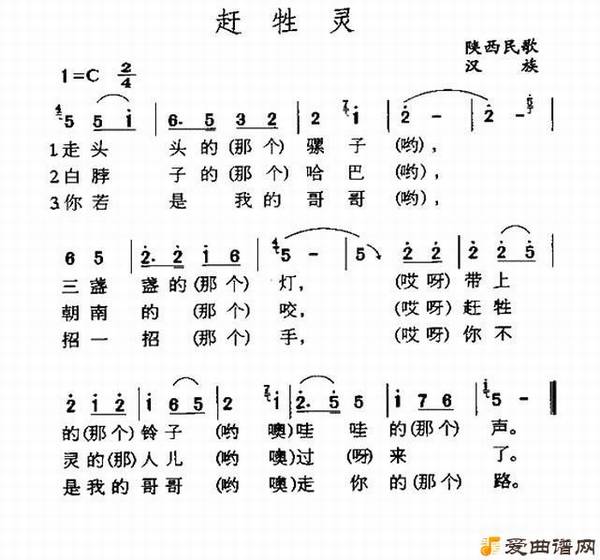 赶牲灵
陕西民歌
汉 族
1=C 2/4
5 5 1 | 6. 5 3 2 | 2 1 | 2 - | 2 - |
1走头 头的(那个)骡子(哟),
2白脖 子的(那个)哈巴(哟),
3你若 是 我的哥哥(哟),
6 5 | 2. 2 1 6 | 5 - | 5 | 2 2 | 2 2 5 |
三盏 盏的(那个)灯, (哎呀)带上
朝南 的 (那个)咬, (哎呀)赶牲
招一 招 (那个)手, (哎呀)你不
2 1 2 | 1 6 5 | 2 1 | 2. 5 5 | 1 7 6 | 5 - ‖
的(那个)铃子 (哟 噢)哇哇的(那个) 声。
灵的(那)人儿 (哟 噢)过 (呀)来 了。
是我的哥哥 (哟 噢)走 你的(那个) 路。
爱曲谱网